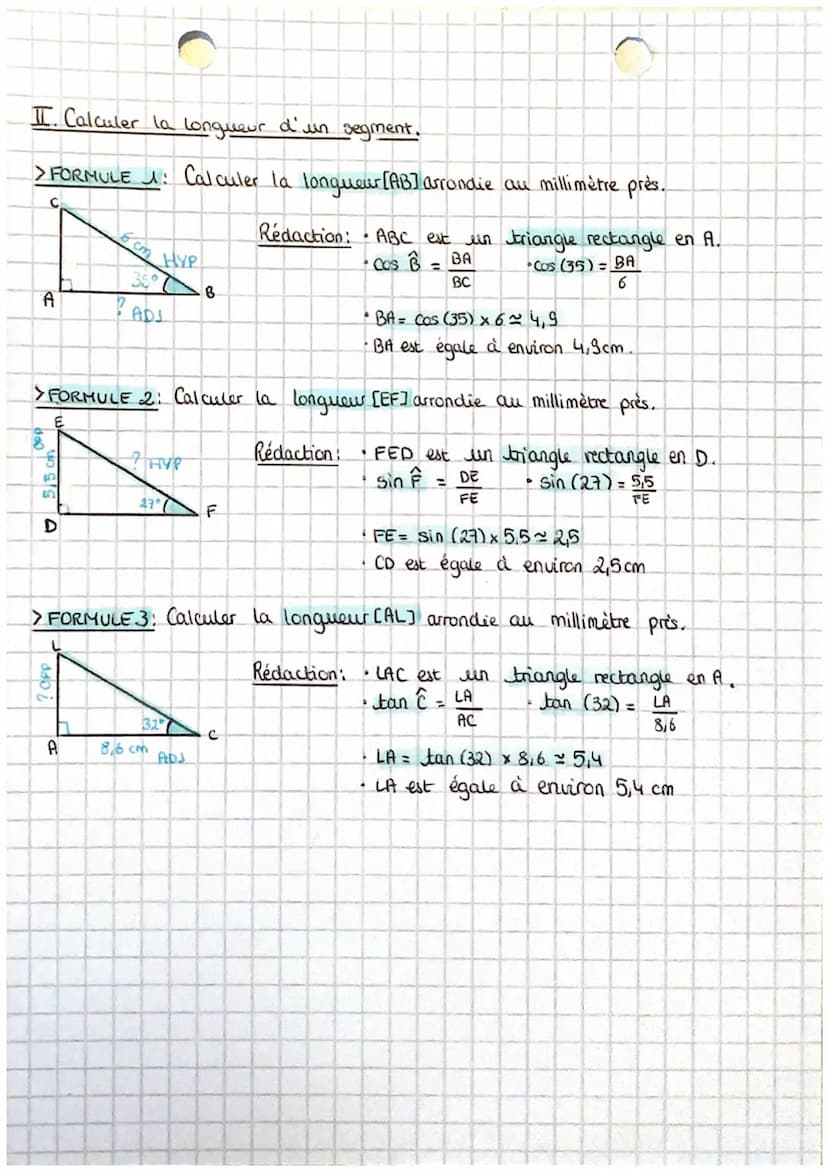 II. Calculer la longueur d'un segment.
> FORMULE 1: Calculer la longueur [AB] arrondie au millimètre près.
C
6 cm HYP
35°
A
B
? ADJ
Rédaction: • ABC est un triangle rectangle en A.
• cos B̂ = BA/BC • cos (35) = BA/6
• BA = cos (35) x 6 ≃ 4,9
• BA est égale à environ 4,9cm.
> FORMULE 2: Calculer la longueur [EF] arrondie au millimètre près.
E
5,5 cm OPP
? HYP
27°
D
F
Rédaction: • FED est un triangle rectangle en D.
• sin F̂ = DE/FE • sin (27) = 5,5/FE
• FE = sin (27) x 5,5 ≃ 2,5
• CD est égale à environ 2,5cm
> FORMULE 3: Calculer la longueur [AL] arrondie au millimètre près.
L
? OPP
32°
A
C
8,6 cm ADJ
Rédaction: • LAC est un triangle rectangle en A.
• tan Ĉ = LA/AC • tan (32) = LA/8,6
• LA = tan (32) x 8,6 ≃ 5,4
• LA est égale à environ 5,4 cm